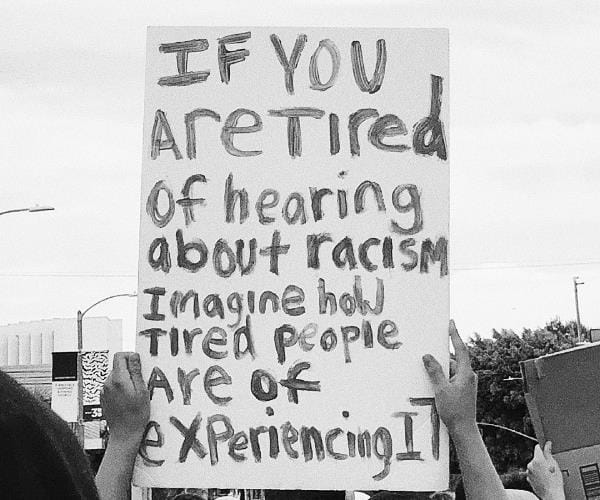 IF YOU
Are TIred
of hearing
about racISM
Imagine how
TIred people
Are of
experiencing IT